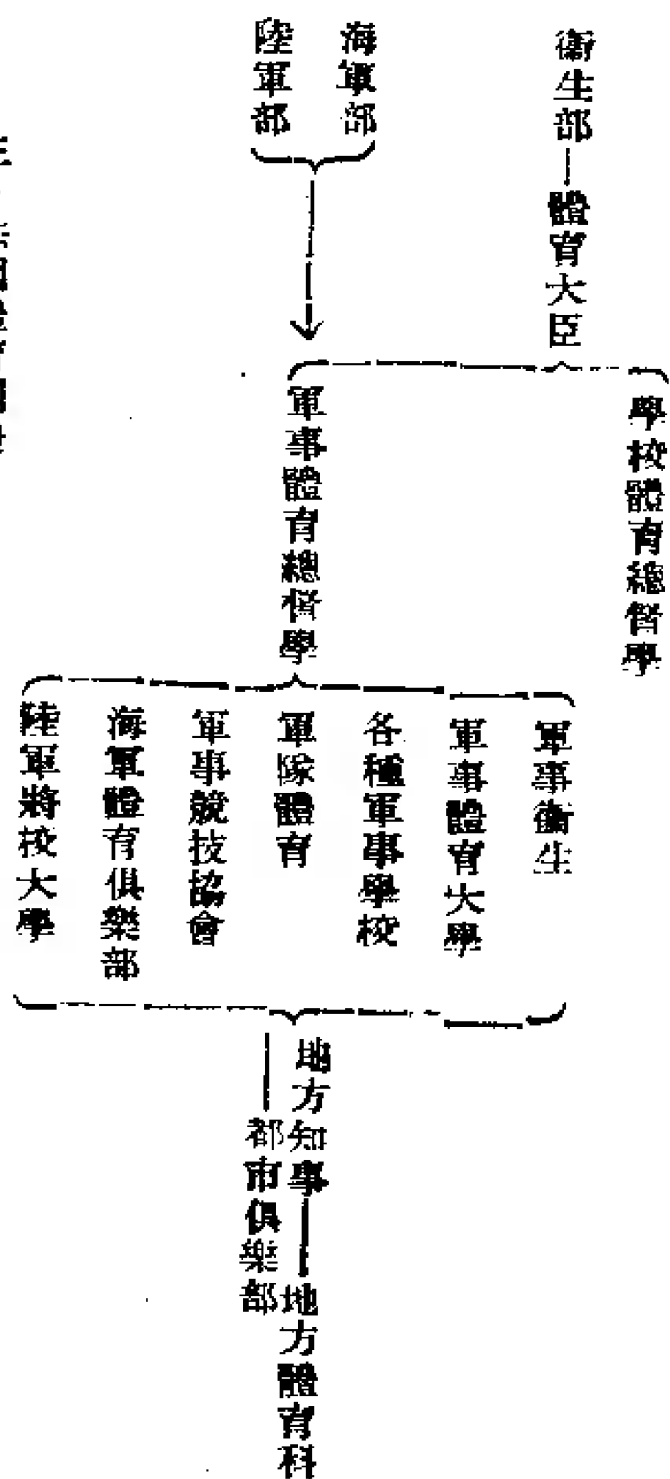 衞生部—體育大臣
海軍部
陸軍部
學校體育總督學
軍事體育總督學
軍事衞生
軍事體育大學
各種軍事學校
軍隊體育
軍事競技協會
海軍體育俱樂部
陸軍將校大學
地方知事—地方體育科
—都市俱樂部